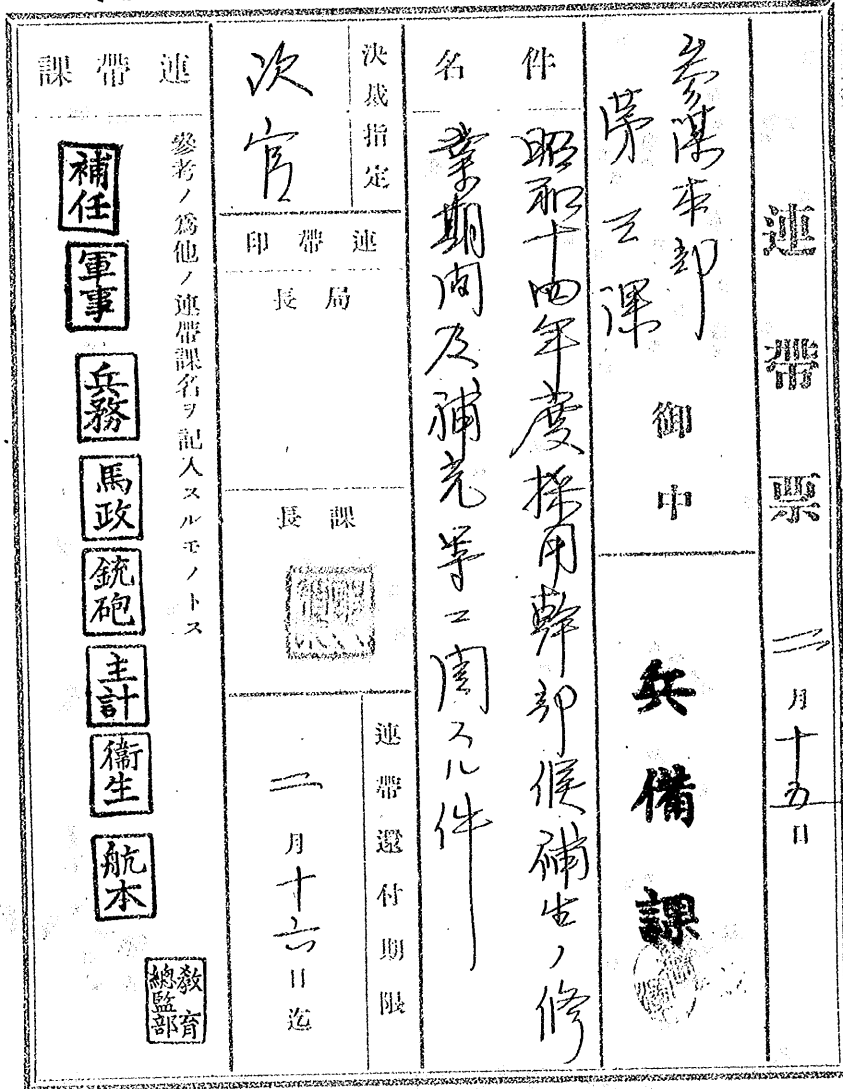 連帶票
二月十五日
參謀本部
第三課 御中
兵備課
件名
昭和十四年度採用幹部候補生ノ修
業期間及補充等ニ關スル件
決裁指定
次官
連帶印
局長
課長
連帶還付期限
二月十六日迄
連帶課
參考ノ爲他ノ連帶課名ヲ記入スルモノトス
補任
軍事
兵務
馬政
銃砲
主計
衞生
航本
敎育
總監部